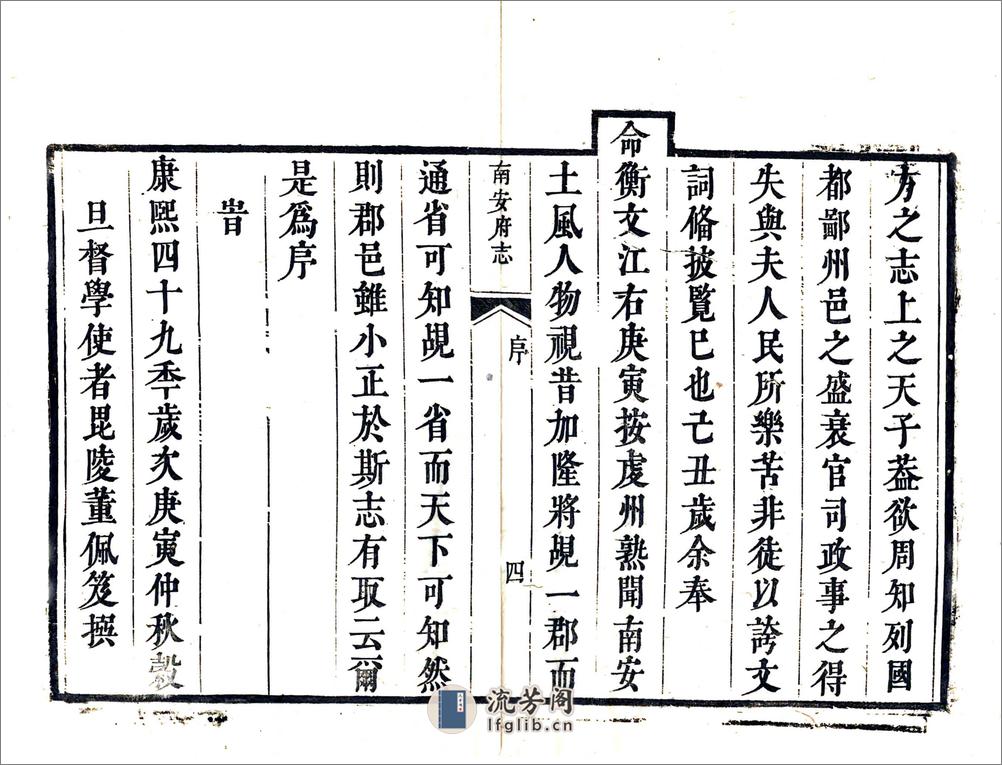 方之志上之天子葢欲周知列國
都鄙州邑之盛衰官司政事之得
失與夫人民所樂苦非徒以誇文
詞俻披覽已也己丑歲余奉
命衡文江右庚寅按虔州熟聞南安
土風人物視昔加隆將覘一郡而
南安府志
序
四
通省可知覘一省而天下可知然
則郡邑雖小正於斯志有取云爾
是爲序
旹
康熙四十九秊歲次庚寅仲秋穀
旦督學使者毘陵董佩笈撰
流芳阁
lfglib.cn